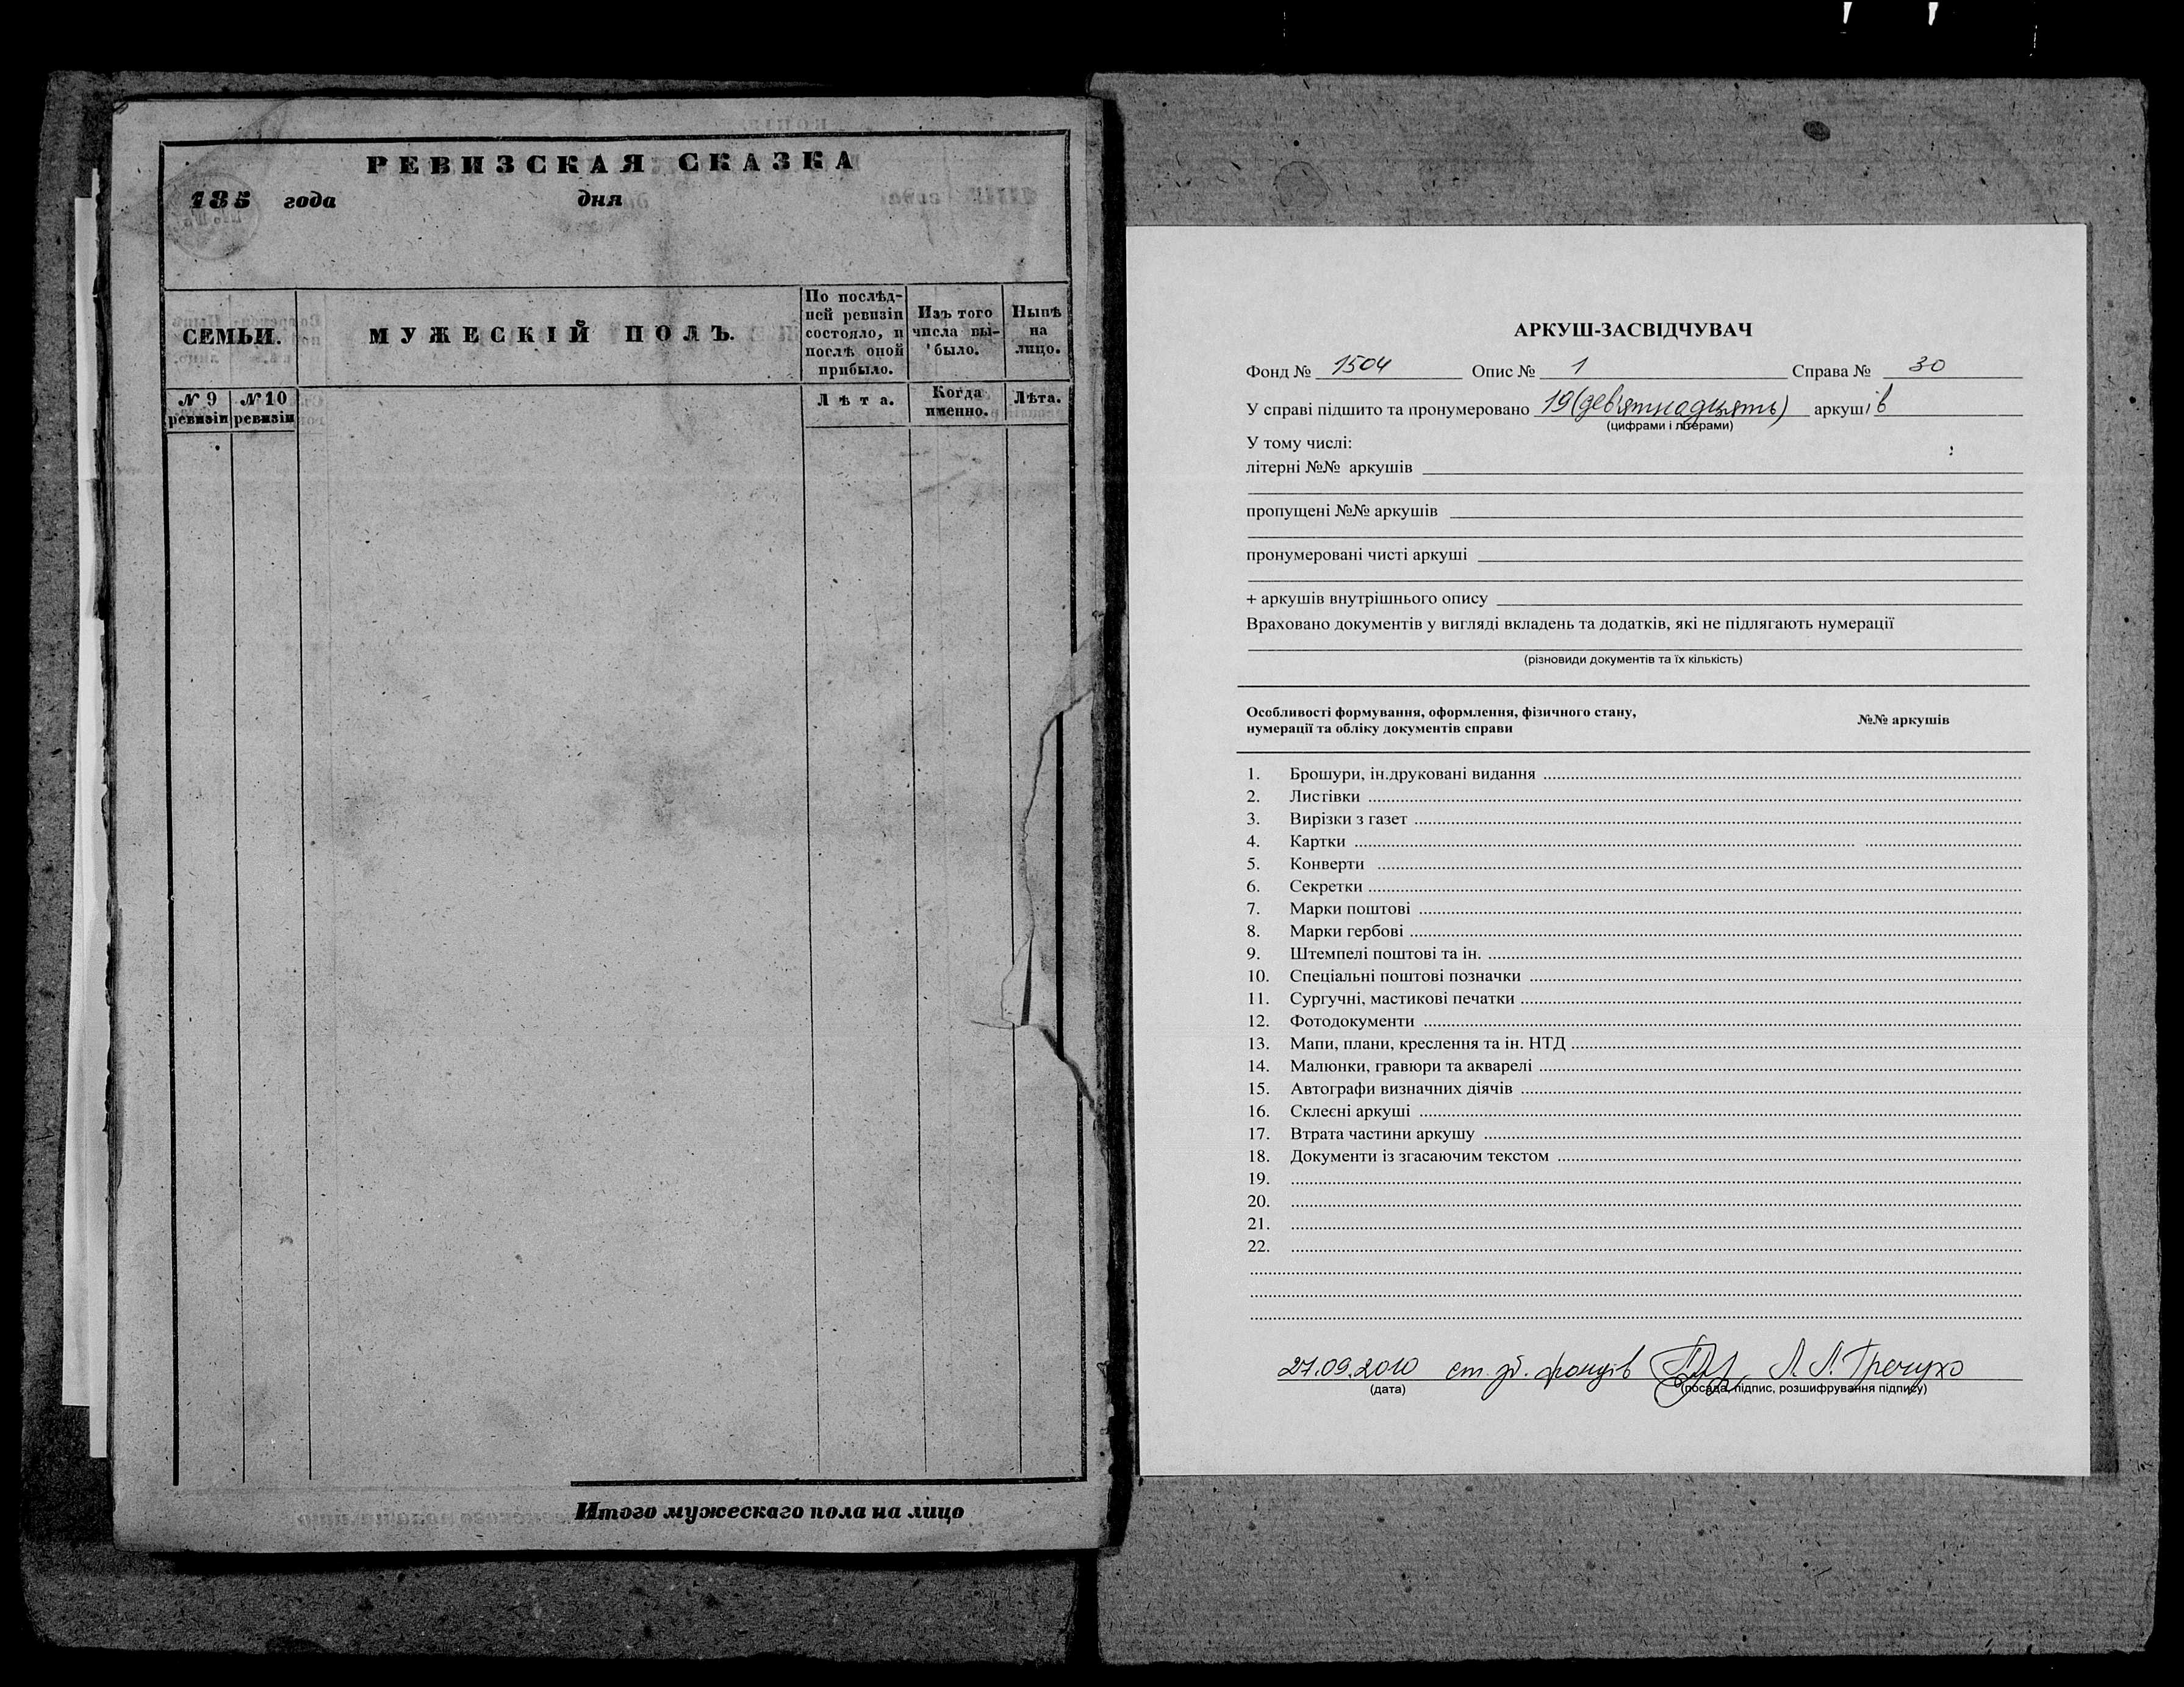 РЕВИЗСКАЯ СКАЗКА
185 года дня
СЕМЬИ.
МУЖЕСКІЙ ПОЛЪ.
По послѣд-
ней ревизіи
состояло, и
послѣ оной
прибыло.
Изъ того
числа вы-
было.
Нынѣ
на
лицо.
№ 9
ревизіи
№ 10
ревизіи
Лѣта.
Когда
именно.
Лѣта.
Итого мужескаго пола на лицо
АРКУШ-ЗАСВІДЧУВАЧ
Фонд № 1504 Опис № 1 Справа № 30
У справі підшито та пронумеровано 19 (дев'ятнадцять) аркушів
(цифрами і літерами)
У тому числі:
літерні №№ аркушів
пропущені №№ аркушів
пронумеровані чисті аркуші
+ аркушів внутрішнього опису
Враховано документів у вигляді вкладень та додатків, які не підлягають нумерації
(різновиди документів та їх кількість)
Особливості формування, оформлення, фізичного стану,
нумерації та обліку документів справи
№№ аркушів
1. Брошури, ін.друковані видання
2. Листівки
3. Вирізки з газет
4. Картки
5. Конверти
6. Секретки
7. Марки поштові
8. Марки гербові
9. Штемпелі поштові та ін.
10. Спеціальні поштові позначки
11. Сургучні, мастикові печатки
12. Фотодокументи
13. Мапи, плани, креслення та ін. НТД
14. Малюнки, гравюри та акварелі
15. Автографи визначних діячів
16. Склеєні аркуші
17. Втрата частини аркушу
18. Документи із згасаючим текстом
19.
20.
21.
22.
27.09.2010 ст. зб. фондів Л. Л. Гречухо
(дата)
(посада, підпис, розшифрування підпису)